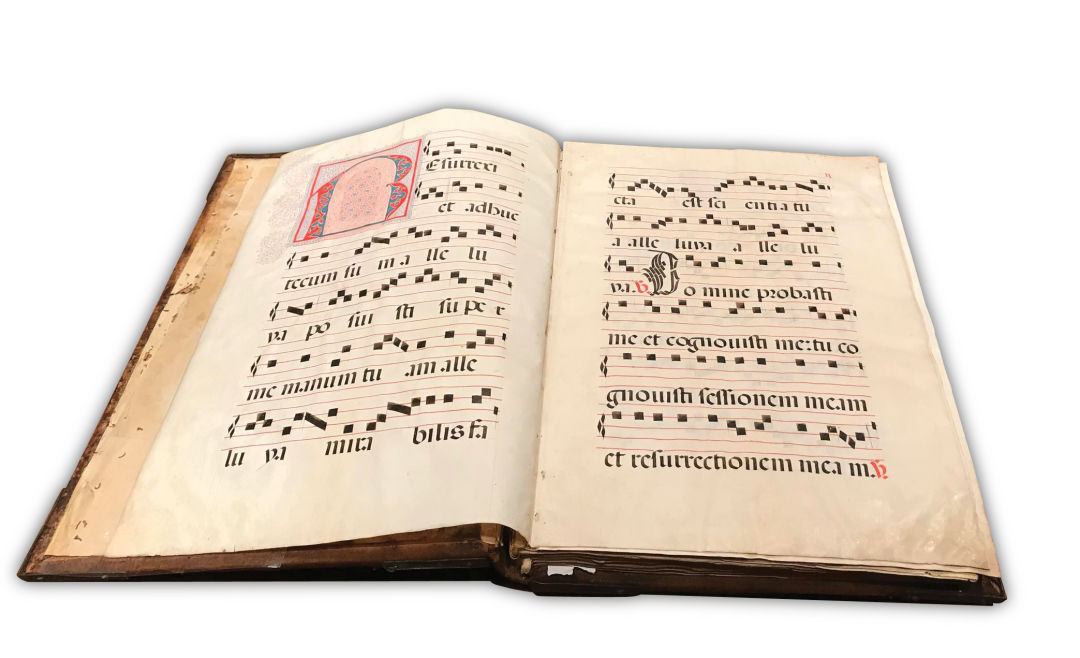 REsurrexi
et adhuc
tecum su m a lle lu
ya po sui sti su pe r
me manum tu am alle
lu ya mira bilis fa
cta est sci entia tu
a alle luya a lle lu
ya. Do mine probasti
me et cognouisti me:tu co
gnouisti sessionem meam
et resurrectionem mea m.